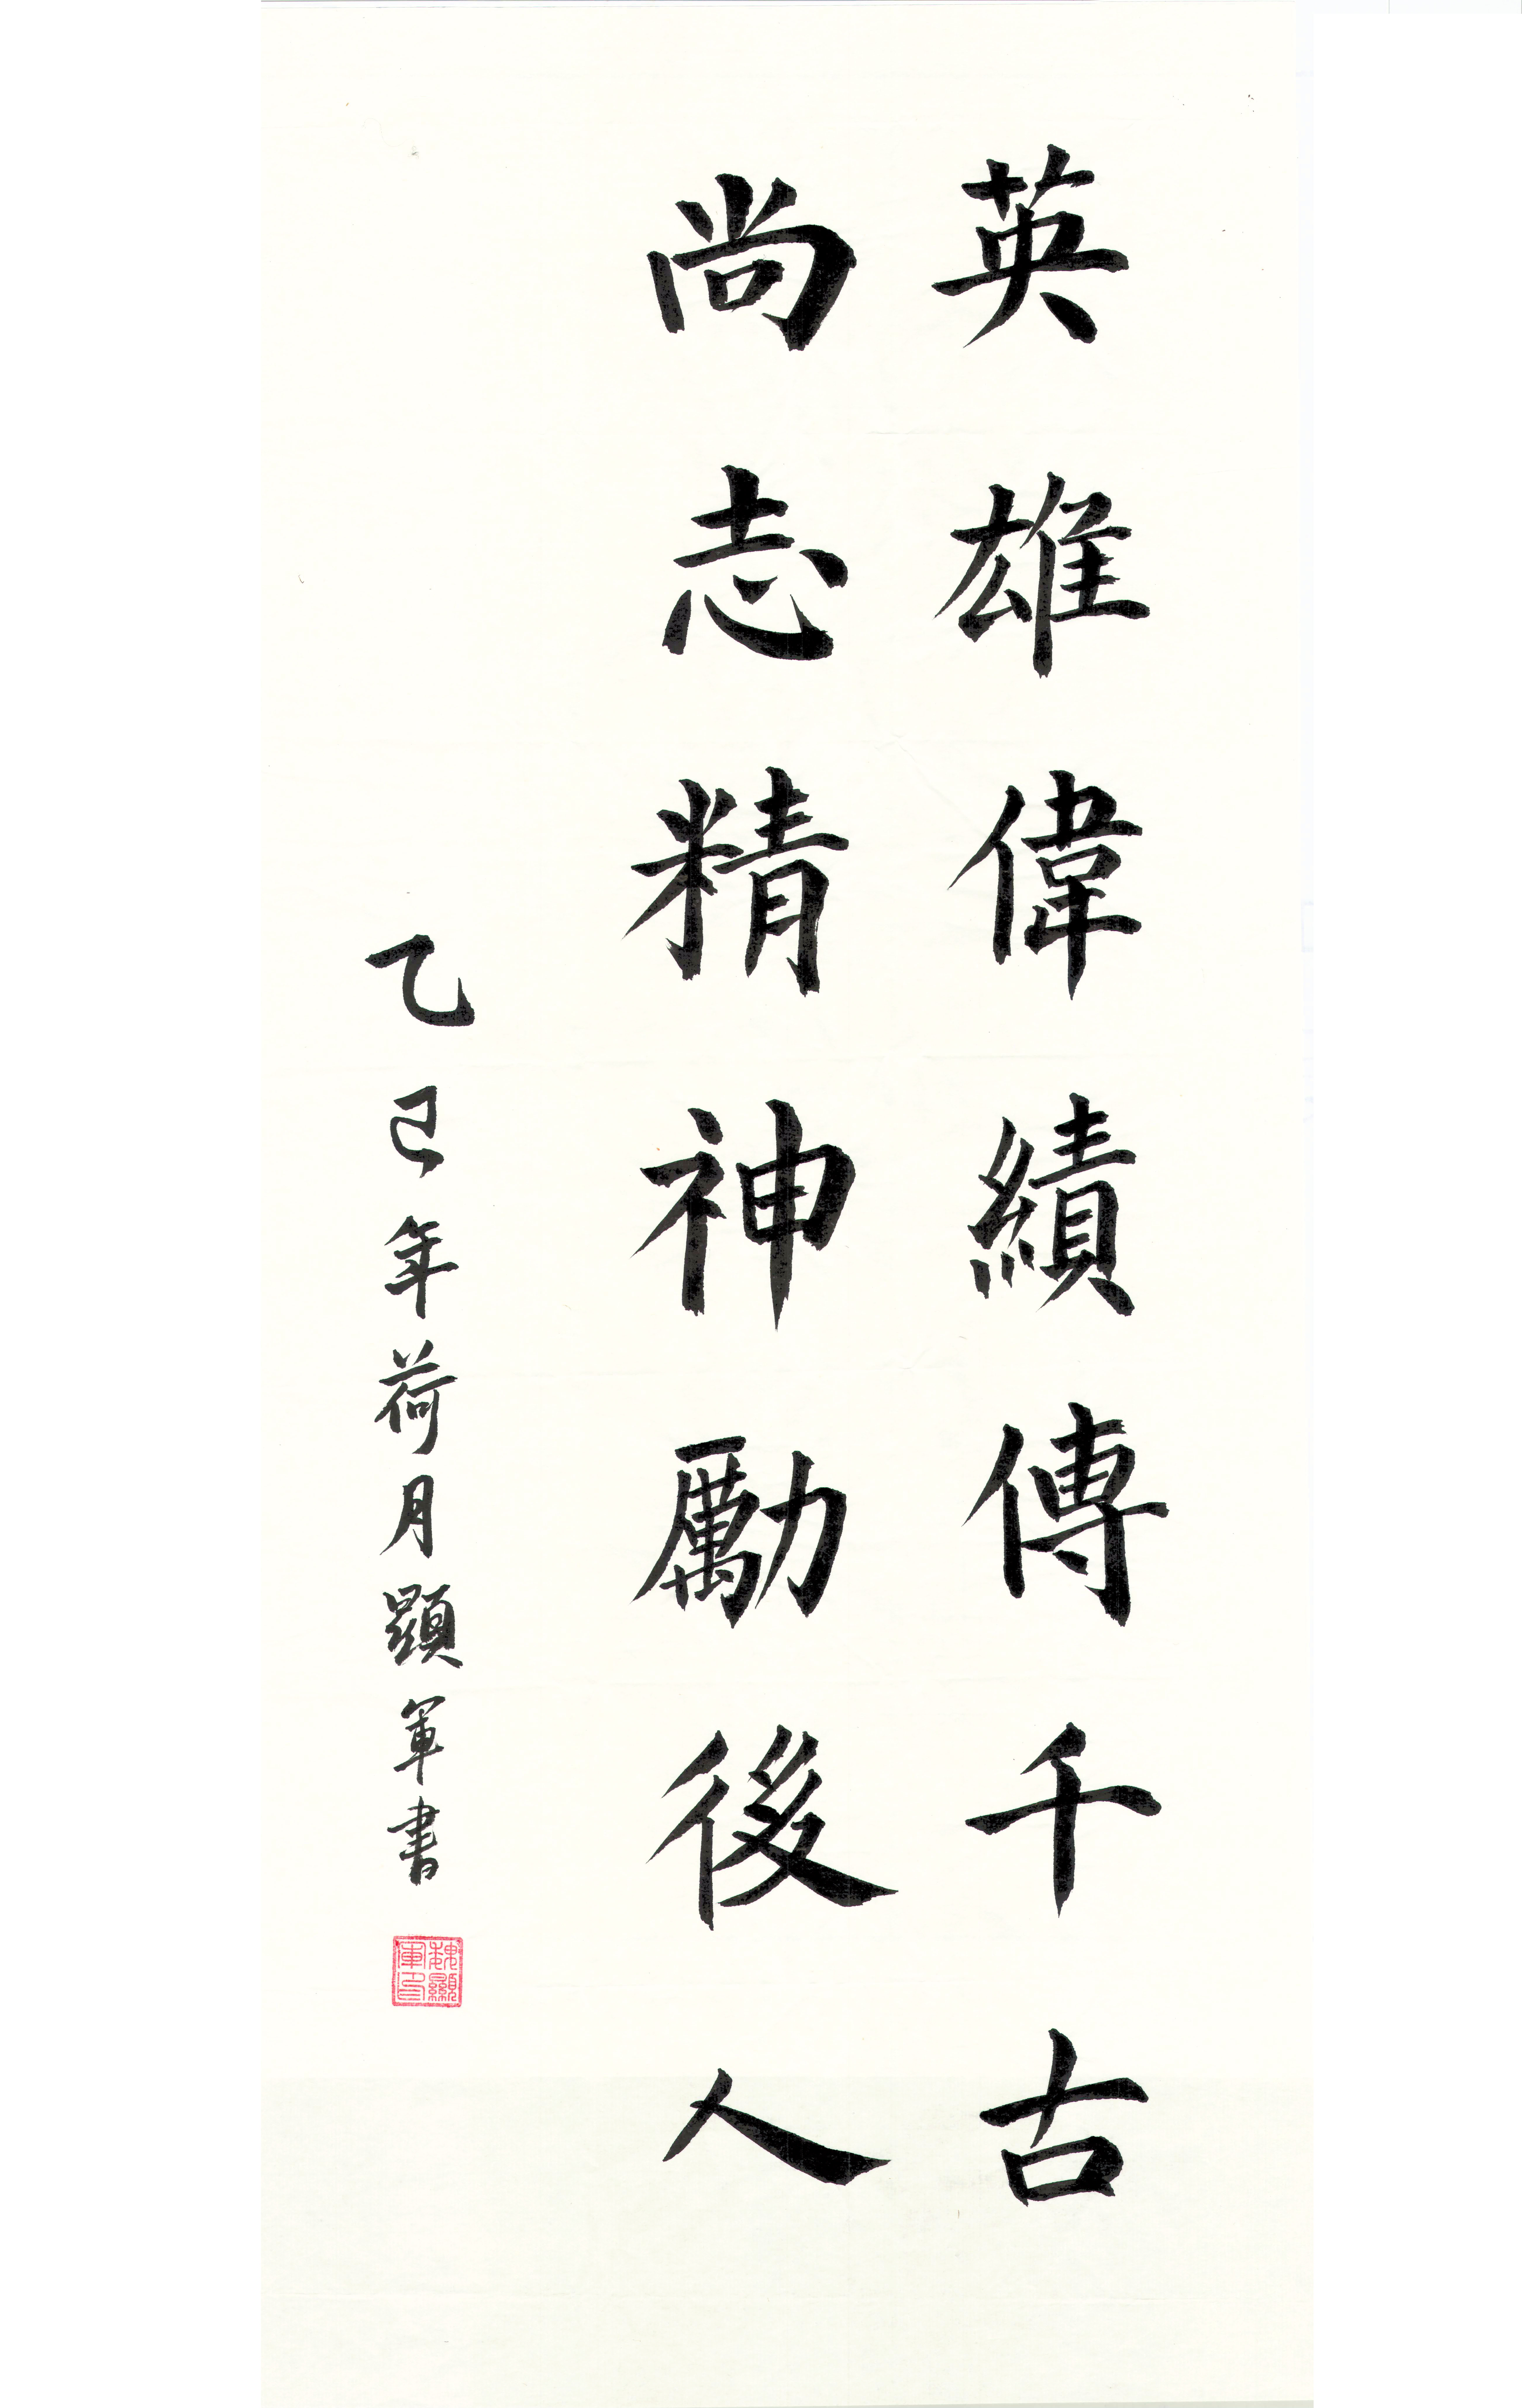 英雄偉績傳千古
尚志精神勵後人
乙巳年荷月顯軍書
魏顯軍印